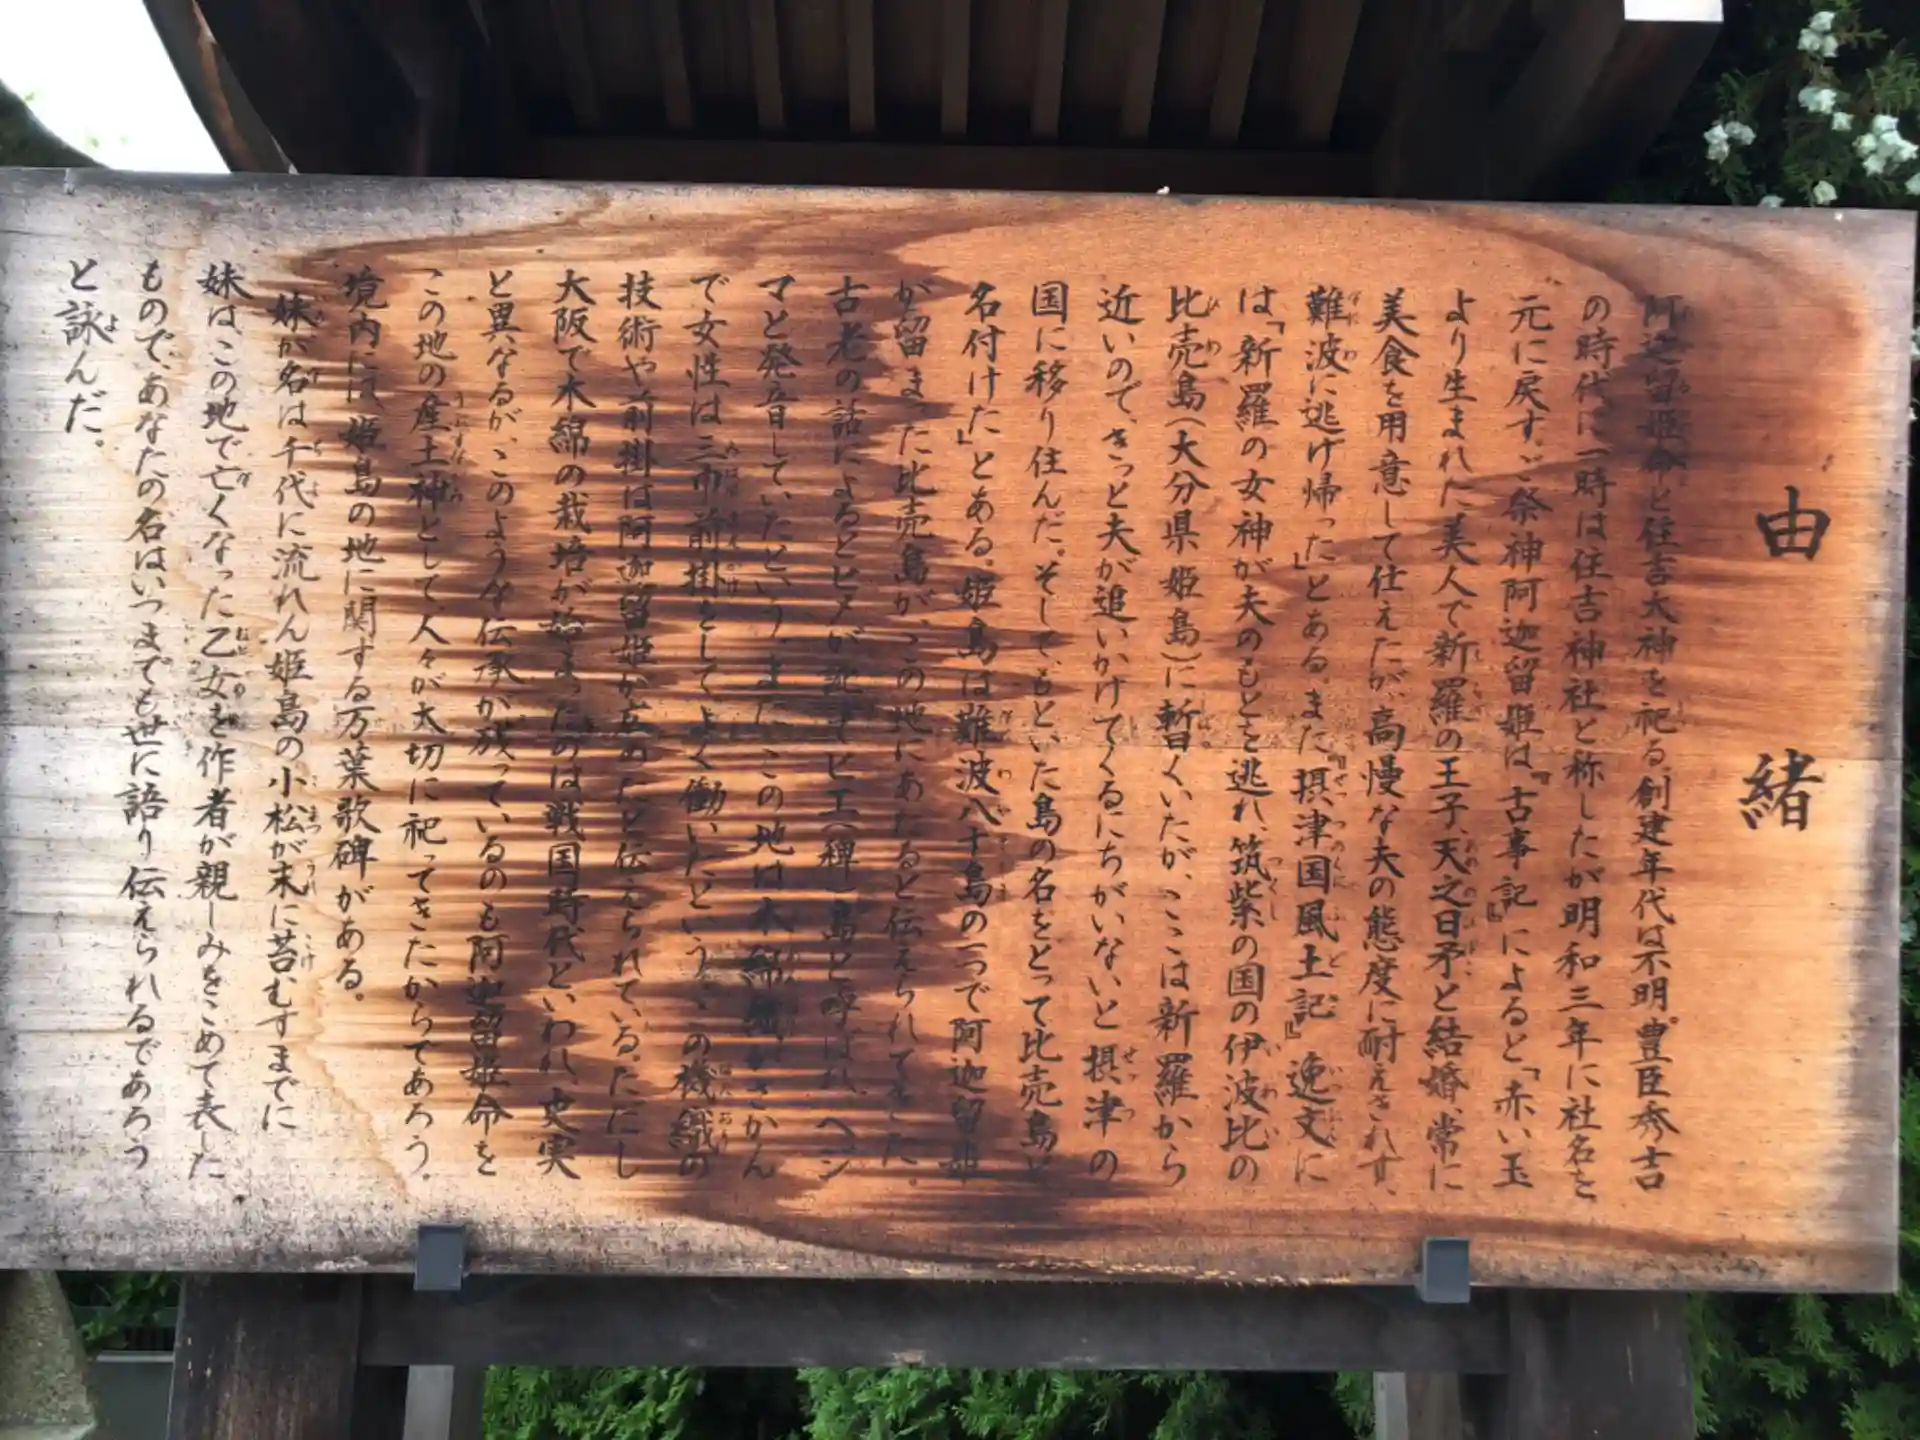 由緒
阿迦留姫命と住吉大神を祀る。創建年代は不明。豊臣秀吉
の時代に一時は住吉神社と称したが明和三年に社名を
元に戻す。ご祭神阿迦留姫は『古事記』によると「赤い玉
より生まれた美人で新羅の王子、天之日矛と結婚、常に
美食を用意して仕えたが、高慢な夫の態度に耐えきれず、
難波に逃げ帰った」とある。また『摂津国風土記』逸文に
は「新羅の女神が夫のもとを逃れ、筑紫の国の伊波比の
比売島(大分県姫島)に暫くいたが、ここは新羅から
近いので、きっと夫が追いかけてくるにちがいないと摂津の
国に移り住んだ。そして、もといた島の名をとって比売島と
名付けた」とある。姫島は難波八十島の一つで阿迦留姫
が留まった比売島が、この地にあたると伝えられてきた。
古老の話によるとヒメが訛ってヒエ(稗)島と呼ばれ、ヘン
マと発音していたという。また、この地は木綿織がさかん
で女性は三巾前掛をしてよく働いたという。この機織の
技術や前掛は阿迦留姫が広めたと伝えられている。ただし
大阪で木綿の栽培が始まったのは戦国時代といわれ、史実
と異なるが、このような伝承が残っているのも阿迦留姫命を
この地の産土神として、人々が大切に祀ってきたからであろう。
境内には、姫島の地に関する万葉歌碑がある。
妹が名は千代に流れん姫島の小松が末に苔むすまでに
妹はこの地で亡くなった乙女を作者が親しみをこめて表した
もので、あなたの名はいつまでも世に語り伝えられるであろう
と詠んだ。